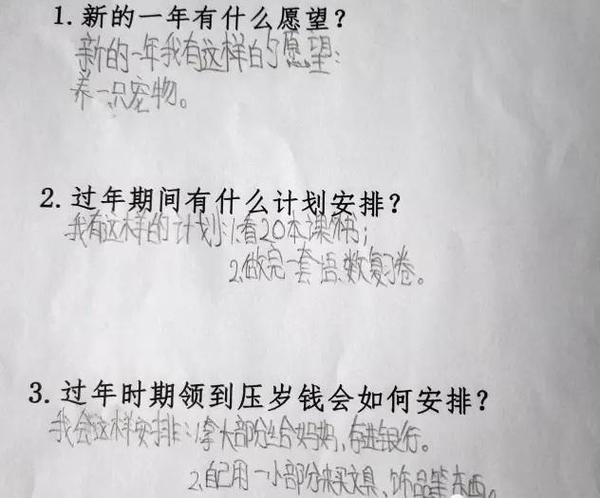 1.新的一年有什么愿望?
新的一年我有这样的愿望:
养一只宠物。
2.过年期间有什么计划安排?
我有这样的计划:1.看20本课外书;
2.做完一套语、数复习卷。
3.过年时期领到压岁钱会如何安排?
我会这样安排:1.拿大部分给妈妈,存进银行。
2.自己用一小部分来买文具、饰品等东西。